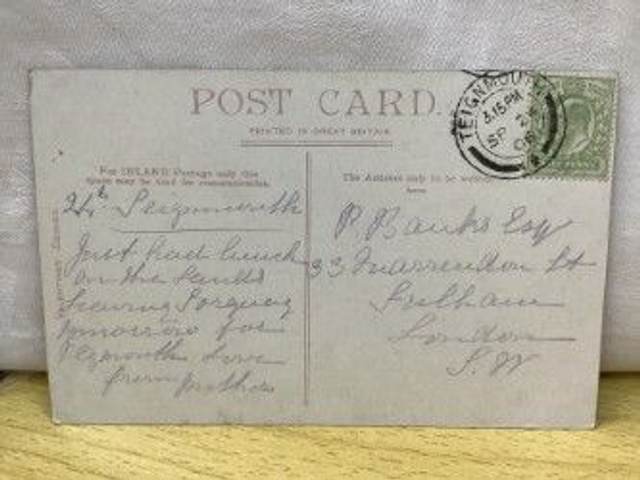 POST CARD.
PRINTED IN GREAT BRITAIN
For INLAND Postage only this
space may be used for communication.
The Address only to be
here
TEIGNMOUTH
3.15 PM
SP 2
06
24th Teignmouth
Just had lunch
on the Sands
leaving Torquay
tomorrow for
Plymouth Love
from
P Banks Esq
33 St
Fulham
London
S.W